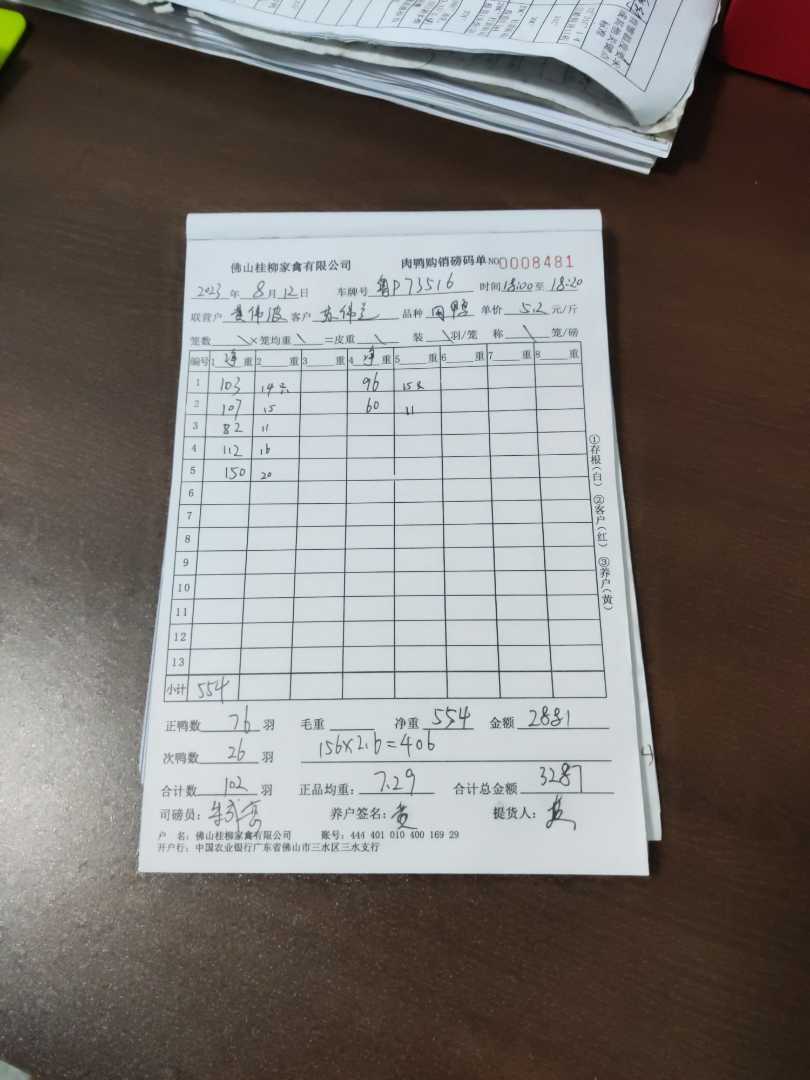 佛山桂柳家禽有限公司 肉鸭购销磅码单 NO 0008481
2023 年 8 月 12 日 车牌号 粤P73516 时间 18:00 至 18:20
联营户 黄伟波 客户 苏伟 品种 田鸭 单价 5.2 元/斤
笼数 \ ×笼均重 \ =皮重 \ 装 \ 羽/笼 称 \ 笼/磅
编号 1 净 重 2 重 3 重 4 净 重 5 重 6 重 7 重 8 重
1 103 14 96 15
2 107 15 60 11
3 82 11
4 112 16
5 150 20
6
7
8
9
10
11
12
13
小计 554
①存根(白) ②客户(红) ③养户(黄)
正鸭数 76 羽 毛重 净重 554 金额 2881
次鸭数 26 羽 156×2.6=406
合计数 102 羽 正品均重: 7.29 合计总金额 3287
司磅员: 养户签名: 黄 提货人:
户 名: 佛山桂柳家禽有限公司 账号: 444 401 010 400 169 29
开户行: 中国农业银行广东省佛山市三水区三水支行